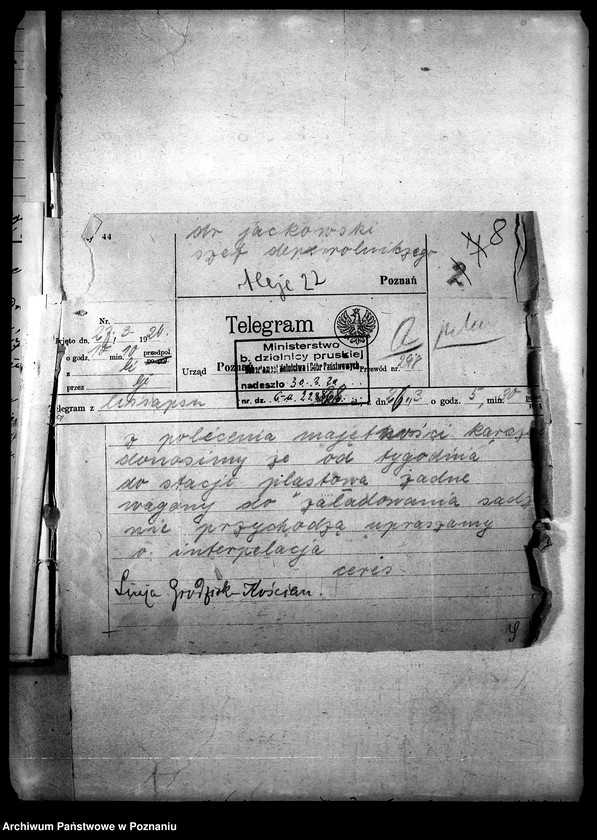 44
dr jackowski
szef dep. rolniczego
Aleje 22
Poznań
8
Nr.
Telegram
Przyjęto dn. 27, 3 1920.
o godz. 10 min. 10 przedpol.
z
przez
Urząd Poznań
Przewód nr.
297
Ministerstwo
b. dzielnicy pruskiej
Departament Rolnictwa i Dóbr Państwowych
nadeszło 30.3.20.
nr. dz.
Telegram z
dn. 26, 3 o godz. 5, min. 30
z polecenia majętności
donosimy że od tygodnia
do stacji plastowa żadne
wagany do załadowania
nie przychodzą upraszamy
o interpelacja
ceres
Linja Grodzisk-Kościan.
Archiwum Państwowe w Poznaniu